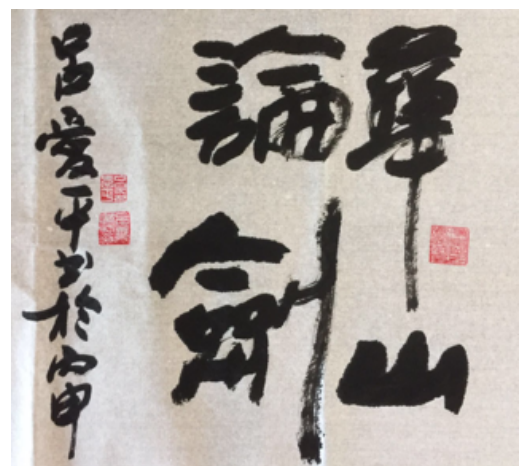 華山
論劍
呂愛平書於丙申